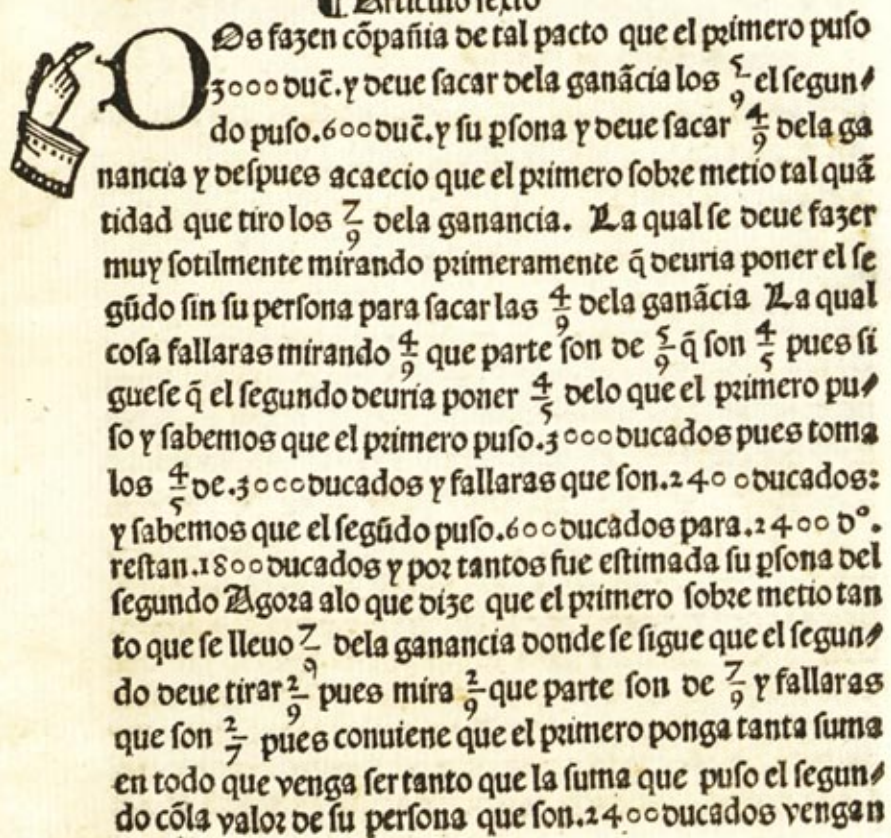 ¶ Articulo sexto
DOs fazen cõpañia de tal pacto que el primero puso
3000 duc̃. y deue sacar dela ganãcia los 5/9 el segun⸗
do puso .600 duc̃. y su ꝑsona y deue sacar 4/9 dela ga
nancia y despues acaecio que el primero sobre metio tal quã
tidad que tiro los 7/9 dela ganancia. La qual se deue fazer
muy sotilmente mirando primeramente q̃ deuria poner el se
gũdo sin su persona para sacar las 4/9 dela ganãcia La qual
cosa fallaras mirando 4/9 que parte son de 5/9 q̃ son 4/5 pues si
guese q̃ el segundo deuria poner 4/5 delo que el primero pu⸗
so y sabemos que el primero puso .3000 ducados pues toma
los 4/5 de .3000 ducados y fallaras que son .2400 ducados:
y sabemos que el segũdo puso .600 ducados para .2400 dº.
restan .1800 ducados y por tantos fue estimada su ꝑsona del
segundo Agora alo que dize que el primero sobre metio tan
to que se lleuo 7/9 dela ganancia donde se sigue que el segun⸗
do deue tirar 2/9 pues mira 2/9 que parte son de 7/9 y fallaras
que son 2/7 pues conuiene que el primero ponga tanta suma
en todo que venga ser tanto que la suma que puso el segun⸗
do cõla valor de su persona que son .2400 ducados vengan